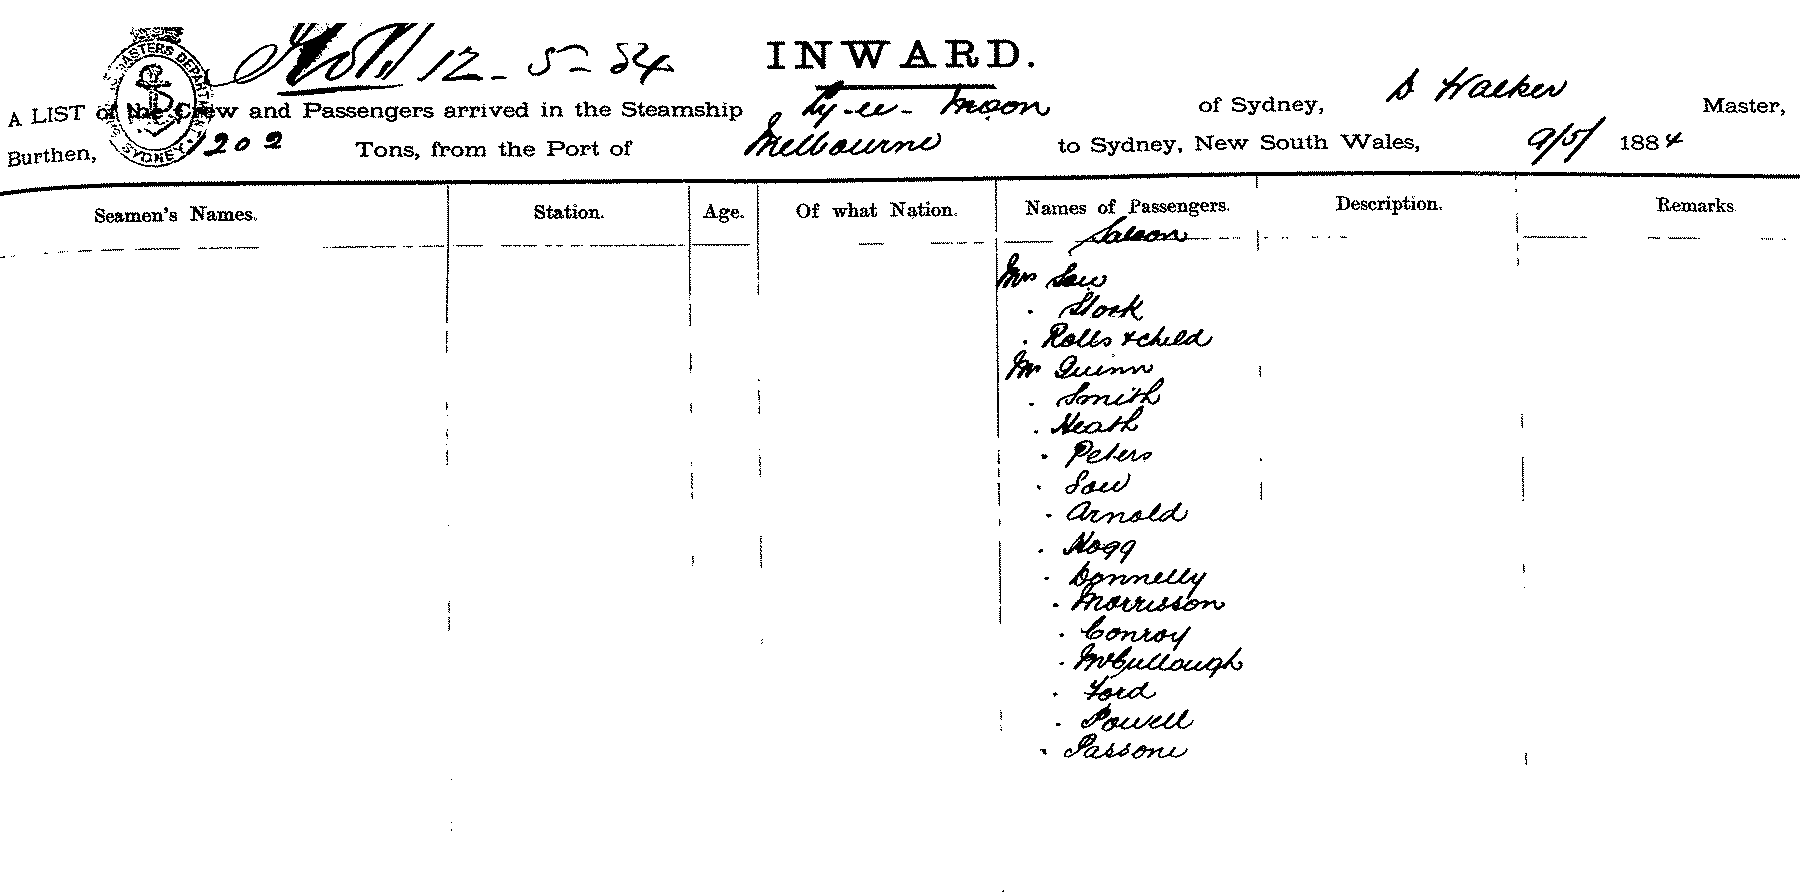 12-5-84
INWARD.
A LIST of the Crew and Passengers arrived in the Steamship Ly-ee-Moon of Sydney, D Walker Master,
Burthen, 1202 Tons, from the Port of Melbourne to Sydney, New South Wales, 9/5/ 1884
SYDNEY
Seamen's Names. Station. Age. Of what Nation. Names of Passengers. Description. Remarks
Saloon
Mrs Law
. Stork
. Rolls & child
Mr Quinn
. Smith
. Heath
. Peters
. Law
. Arnold
. Hogg
. Donnelly
. Morrisson
. Conroy
. McCullough
. Ford
. Powell